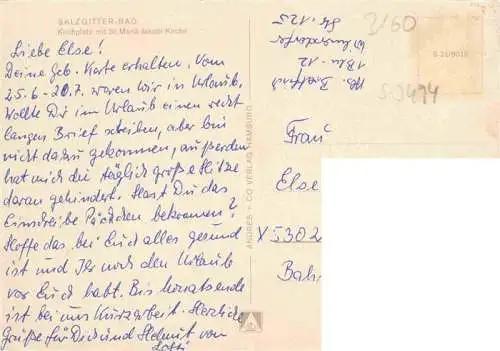 SALZGITTER-BAD
Kirchplatz mit St. Mariä Jakobi Kirche
Liebe Else!
Deine Geb. Karte erhalten. Vom
25.6 - 20.7. waren wir in Urlaub.
Wollte Dir im Urlaub einen recht
langen Brief scheiben, aber bin
nicht dazu gekommen, außerdem
hat mich die täglich große Hitze
daran gehindert. Hast Du das
Einschreibe Päckchen bekommen?
Hoffe das bei Euch alles gesund
ist und Ihr noch den Urlaub
vor Euch habt. Bis Monatsende
ist bei uns Kurzarbeit. Herzliche
Grüße für Dich und Helmut von
Lotti
ANDRES + CO VERLAG HAMBURG
Str. 125
1 Bln. 12
S 21/9018
Frau
Else
X 5302
Bah